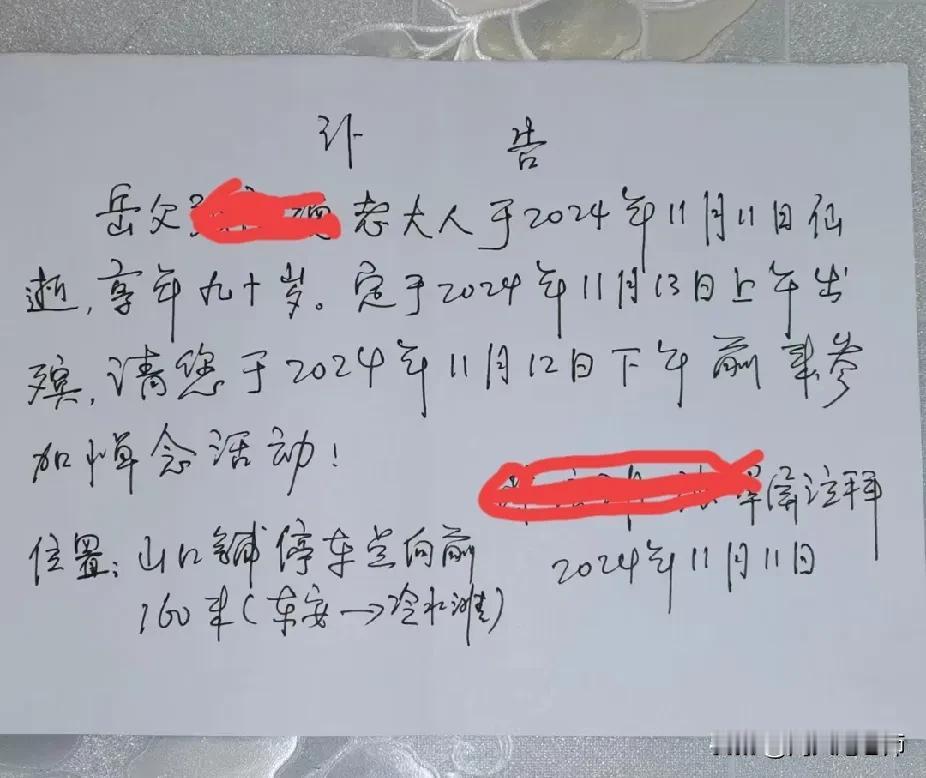 讣 告
岳父老大人于2024年11月11日仙
逝,享年九十岁。定于2024年11月13日上午出
殡,请您于2024年11月12日下午前来参
加悼念活动!
泣拜
位置:山口铺停车点向前
2024年11月11日
160米(东安→冷水滩)